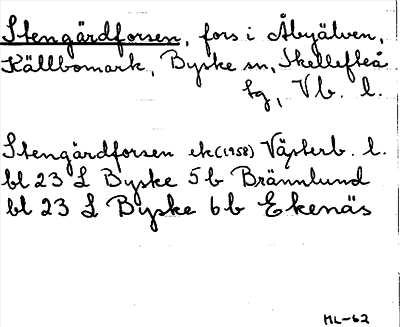 Stengärdforsen, fors i Åbyälven,
Källbomark, Byske sn, Skellefteå
tg, Vb. l.
Stengärdforsen ek (1958) Västerb. l.
bl 23 L Byske 5b Brännlund
bl 23 L Byske 6b Ekenäs
ML-62